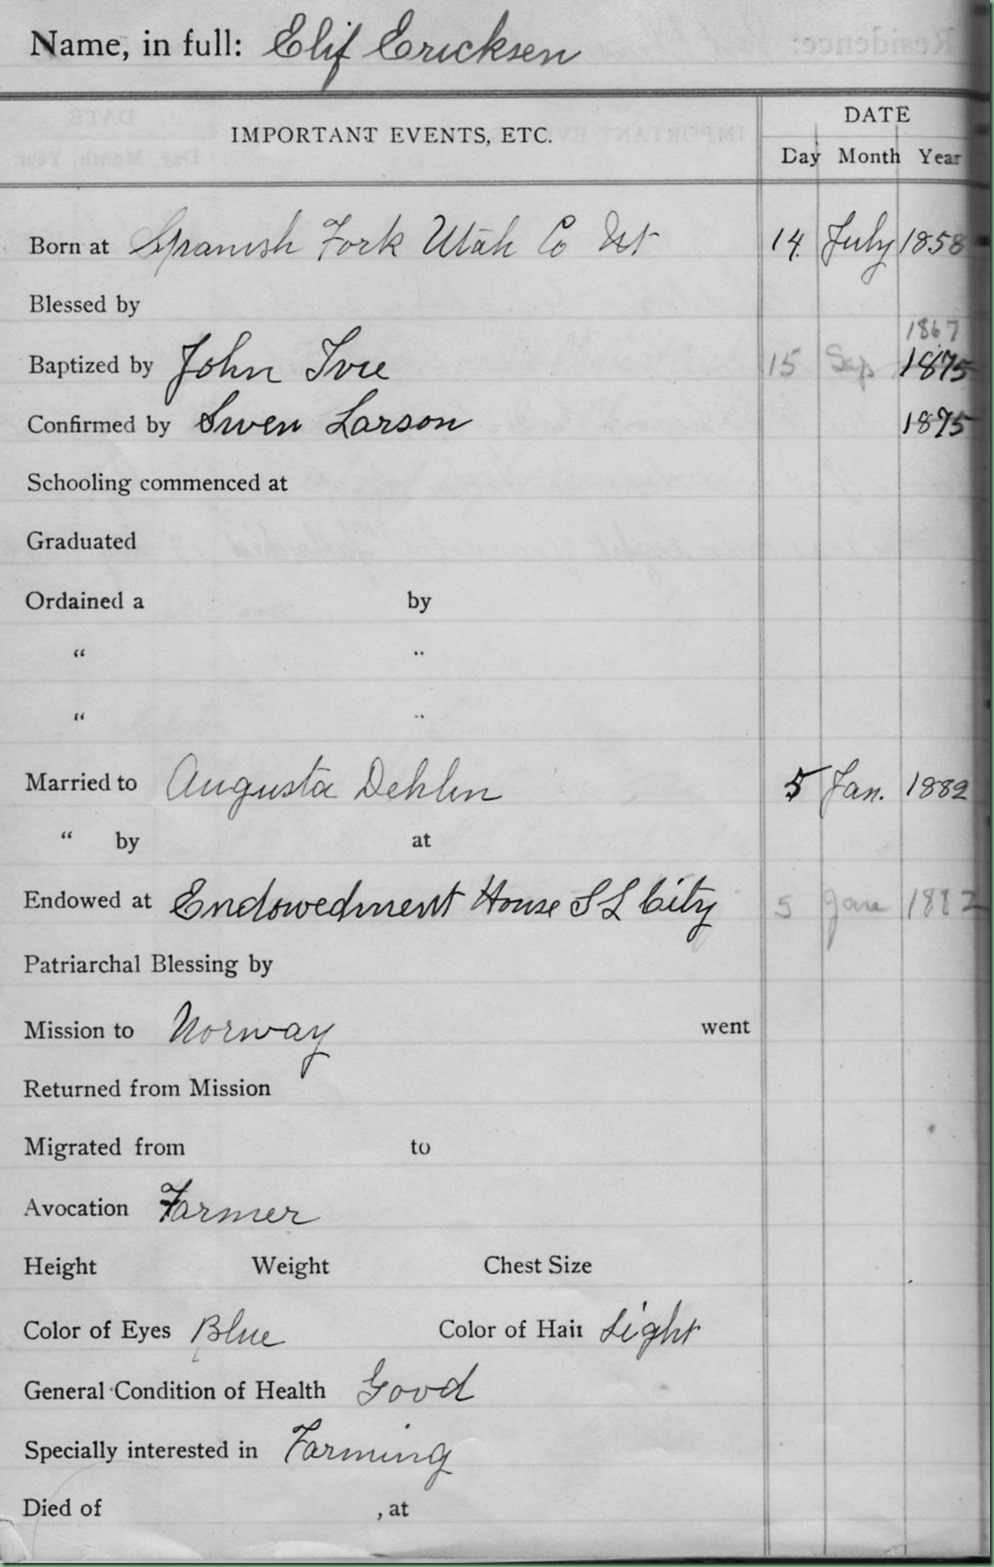 Name, in full: Elif Ericksen
IMPORTANT EVENTS, ETC.
DATE
Day Month Year
Born at Spanish Fork Utah Co Ut 14 July 1858
Blessed by
1867
Baptized by John Ivie 15 Sep 1875
Confirmed by Swen Larson 1875
Schooling commenced at
Graduated
Ordained a by
“ “
“ “
Married to Augusta Dehlin 5 Jan. 1882
“ by at
Endowed at Endowedment House S L City 5 Jane 1882
Patriarchal Blessing by
Mission to Norway went
Returned from Mission
Migrated from to
Avocation Farmer
Height Weight Chest Size
Color of Eyes Blue Color of Hair Light
General Condition of Health Good
Specially interested in Farming
Died of , at